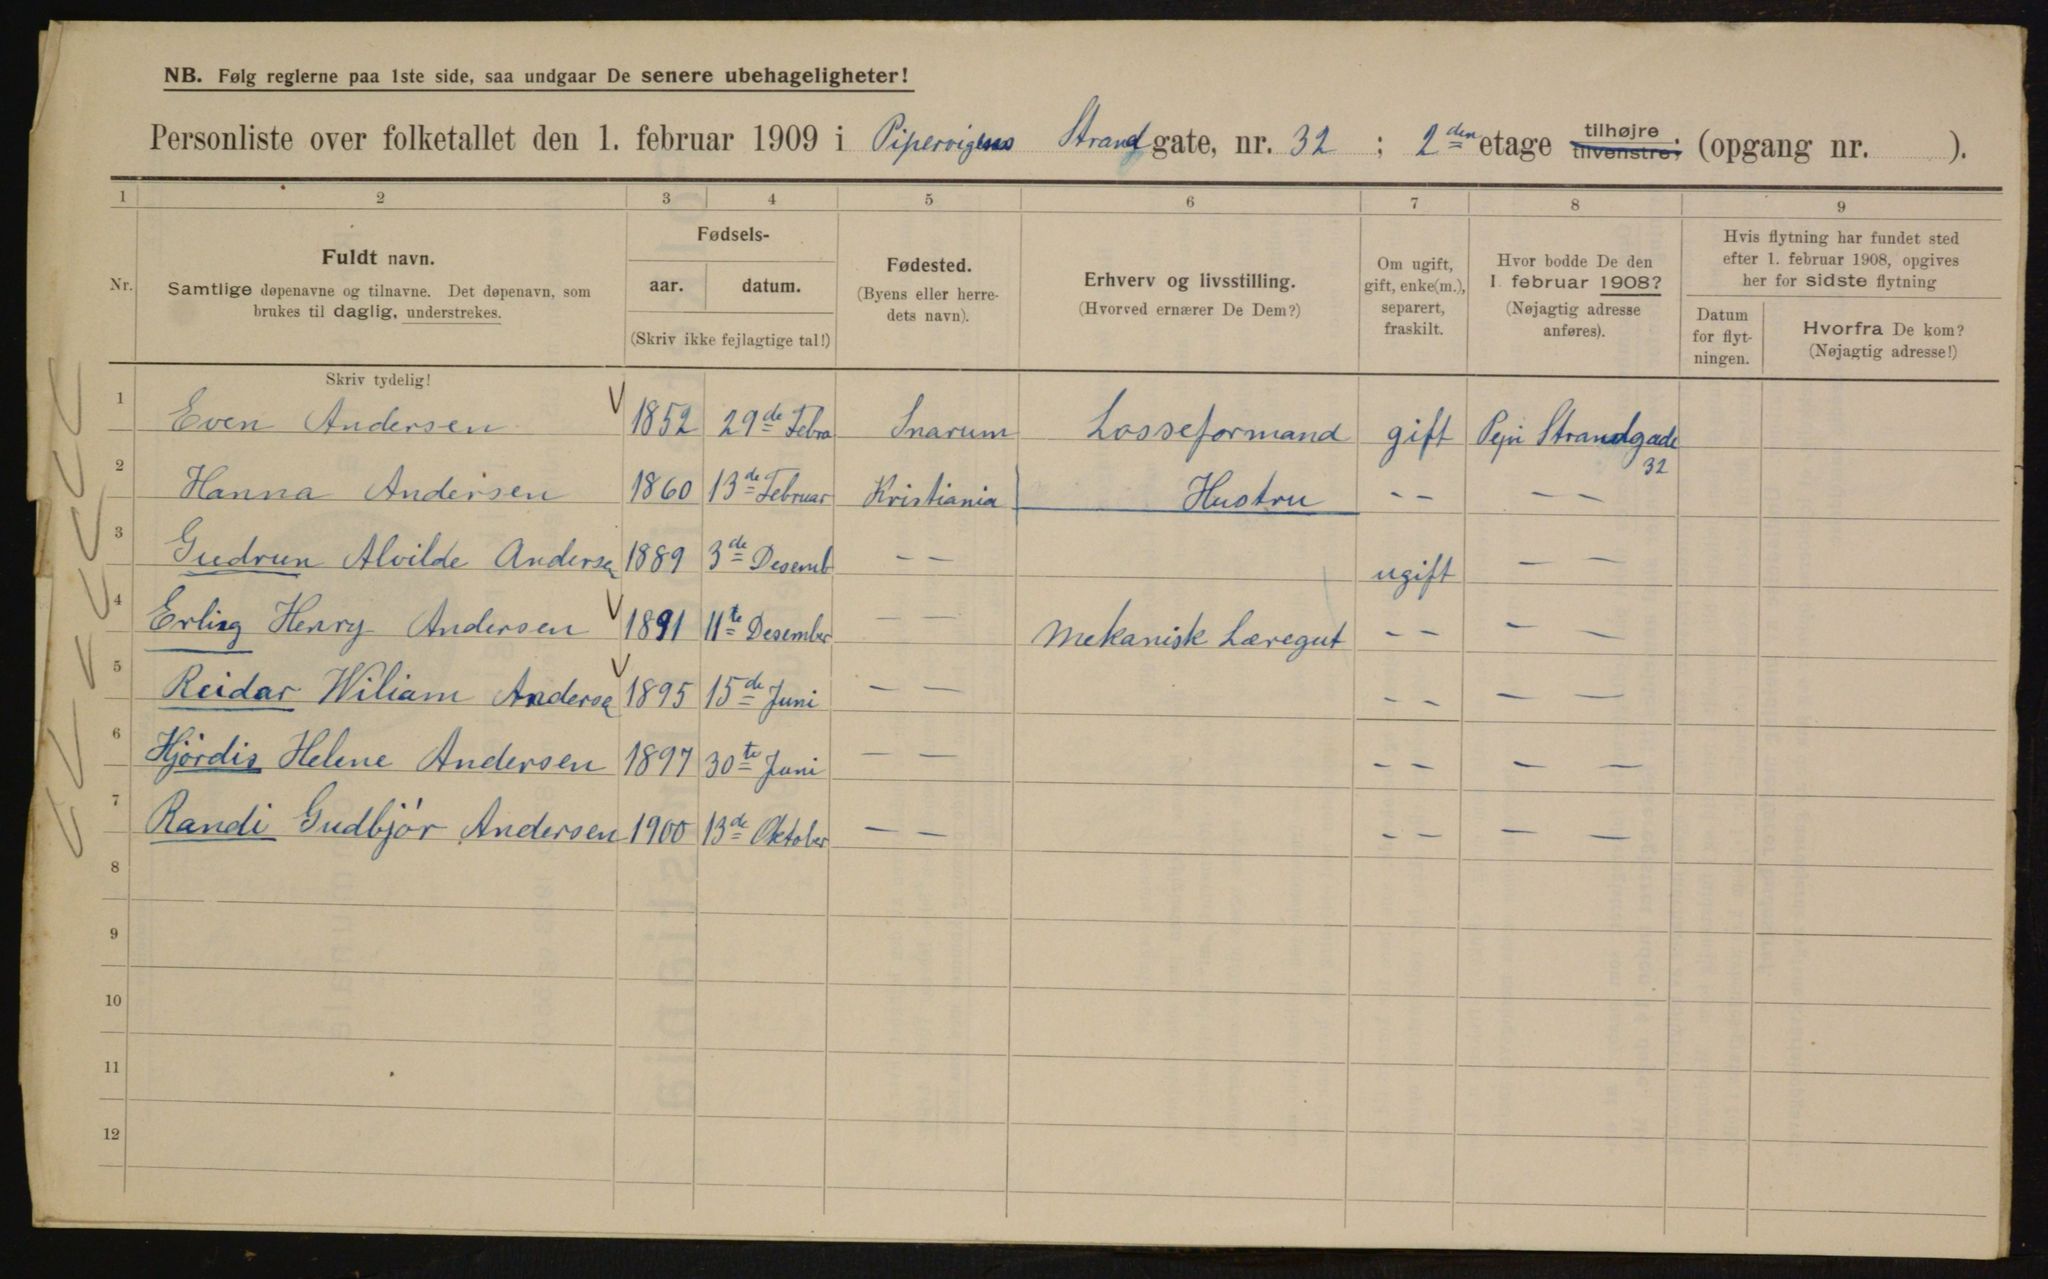 NB. Følg reglerne paa 1ste side, saa undgaar De senere ubehageligheter!
Personliste over folketallet den 1. februar 1909 i Pipervigens Strand gate, nr. 32 ; 2den etage tilhøjre tilvenstre; (opgang nr. ).
1 2 3 4 5 6 7 8 9
Nr.
Fuldt navn.
Samtlige døpenavne og tilnavne. Det døpenavn, som
brukes til daglig, understrekes.
Skriv tydelig!
Fødsels-
aar. datum.
(Skriv ikke fejlagtige tal!)
Fødested.
(Byens eller herre-
dets navn).
Erhverv og livsstilling.
(Hvorved ernærer De Dem?)
Om ugift,
gift, enke(m.),
separert,
fraskilt.
Hvor bodde De den
1. februar 1908?
(Nøjagtig adresse
anføres).
Hvis flytning har fundet sted
efter 1. februar 1908, opgives
her for sidste flytning
Datum
for flyt-
ningen.
Hvorfra De kom?
(Nøjagtig adresse!)
1 Even Andersen 1852 29de Febra Snarum Losseformand gift Strandgade 32
2 Hanna Andersen 1860 13de Februar Kristiania Hustru - - - -
3 Gudrun Alvilde Anderse 1889 3de Desemb - - ugift - -
4 Erling Henry Andersen 1891 11te Desember - - Mekanisk Læregut - - - -
5 Reidar Wiliam Anderse 1895 15de Juni - - - - - -
6 Hjørdis Helene Andersen 1897 30te Juni - - - - - -
7 Randi Gudbjør Andersen 1900 13de Oktober - - - - - -
8
9
10
11
12